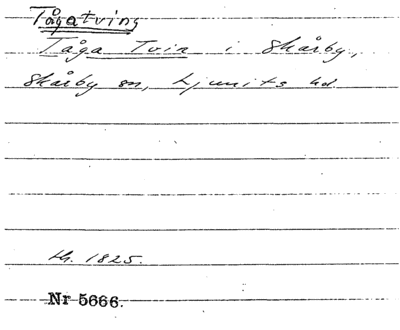 Tågatving
Tåga Tvin i Skårby,
Skårby sn, Ljunits hd
th. 1825.
Nr 5666.